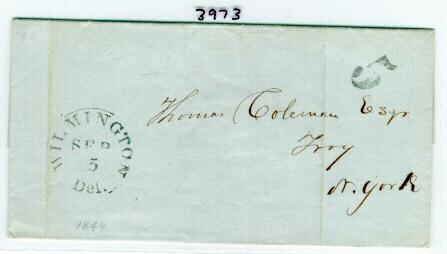 3973
5
WILMINGTON
SEP
5
Del.
Thomas Coleman Esqr
Troy
N. York
1849